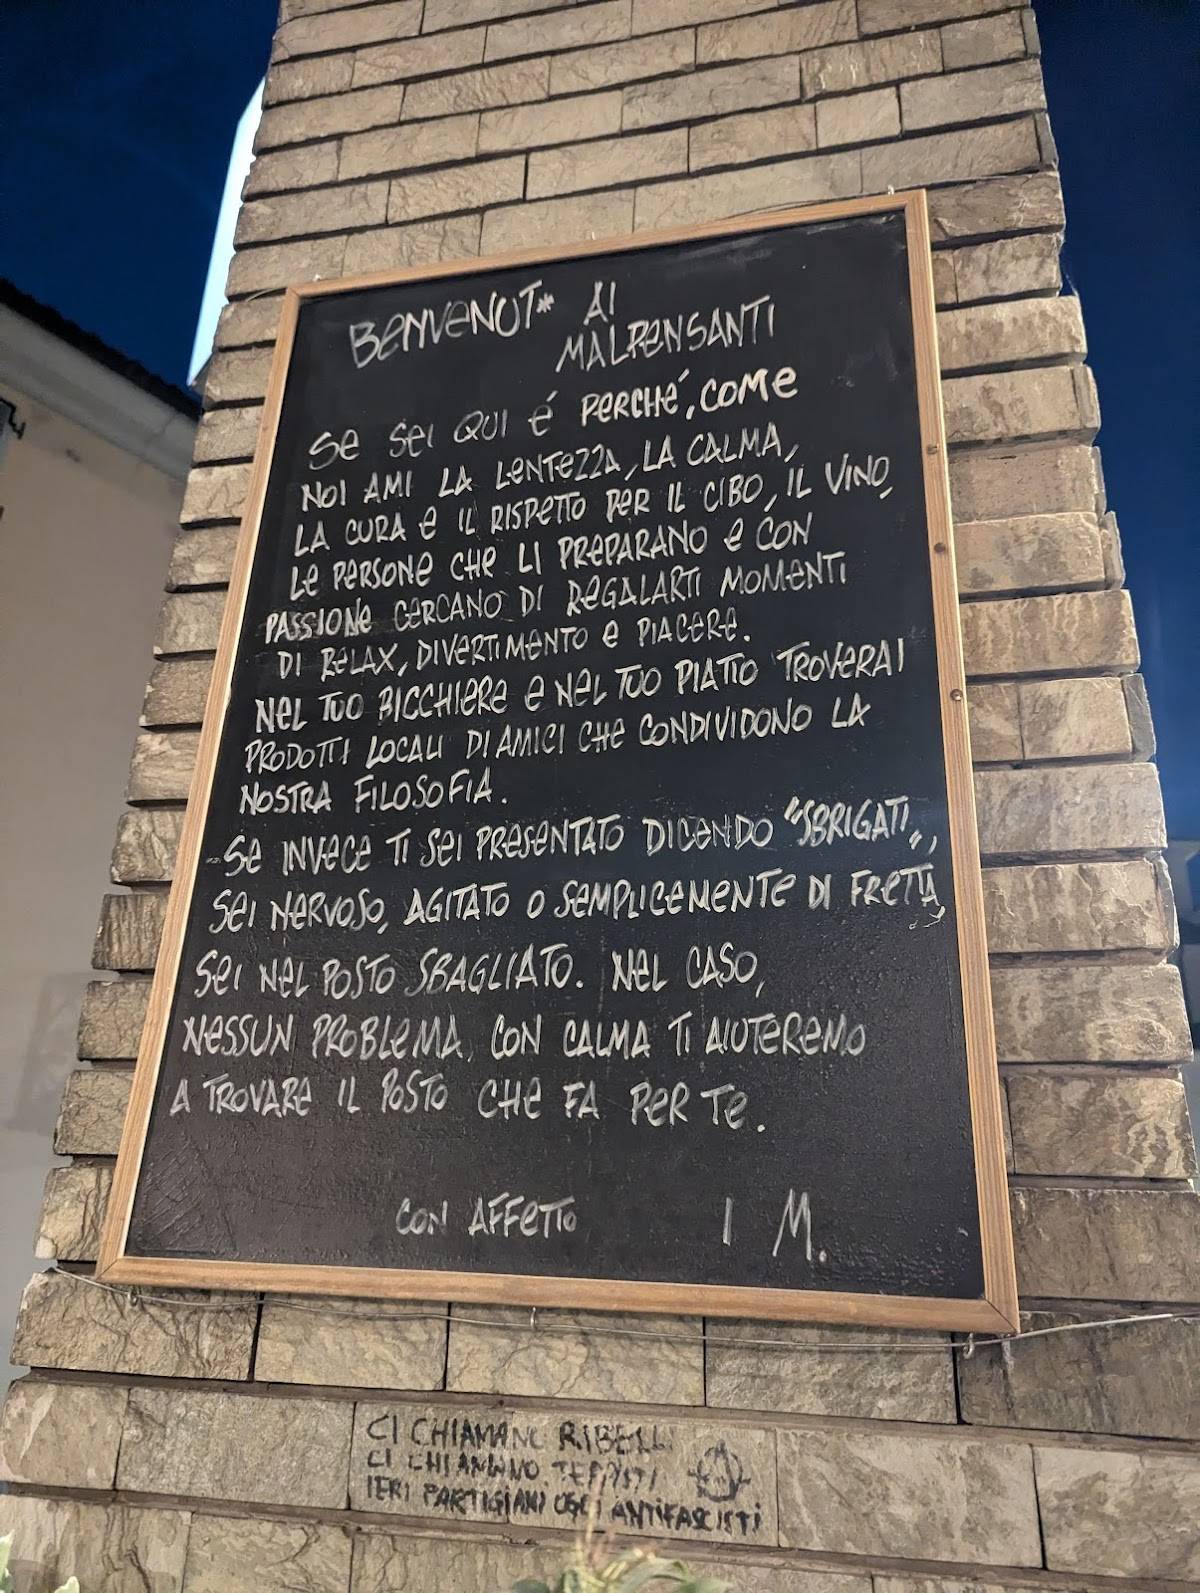 BENVENUT* AI
MALPENSANTI
SE SEI QUI É PERCHÉ, COME
NOI AMI LA LENTEZZA, LA CALMA,
LA CURA E IL RISPETTO PER IL CIBO, IL VINO,
LE PERSONE CHE LI PREPARANO E CON
PASSIONE CERCANO DI REGALARTI MOMENTI
DI RELAX, DIVERTIMENTO E PIACERE.
NEL TUO BICCHIERE E NEL TUO PIATTO TROVERAI
PRODOTTI LOCALI DI AMICI CHE CONDIVIDONO LA
NOSTRA FILOSOFIA.
SE INVECE TI SEI PRESENTATO DICENDO "SBRIGATI",
SEI NERVOSO, AGITATO O SEMPLICEMENTE DI FRETTA,
SEI NEL POSTO SBAGLIATO. NEL CASO,
NESSUN PROBLEMA, CON CALMA TI AIUTEREMO
A TROVARE IL POSTO CHE FA PER TE.
CON AFFETTO I M.
CI CHIAMANO RIBELLI
CI CHIAMANO TEPPISTI
IERI PARTIGIANI OGGI ANTIFASCISTI